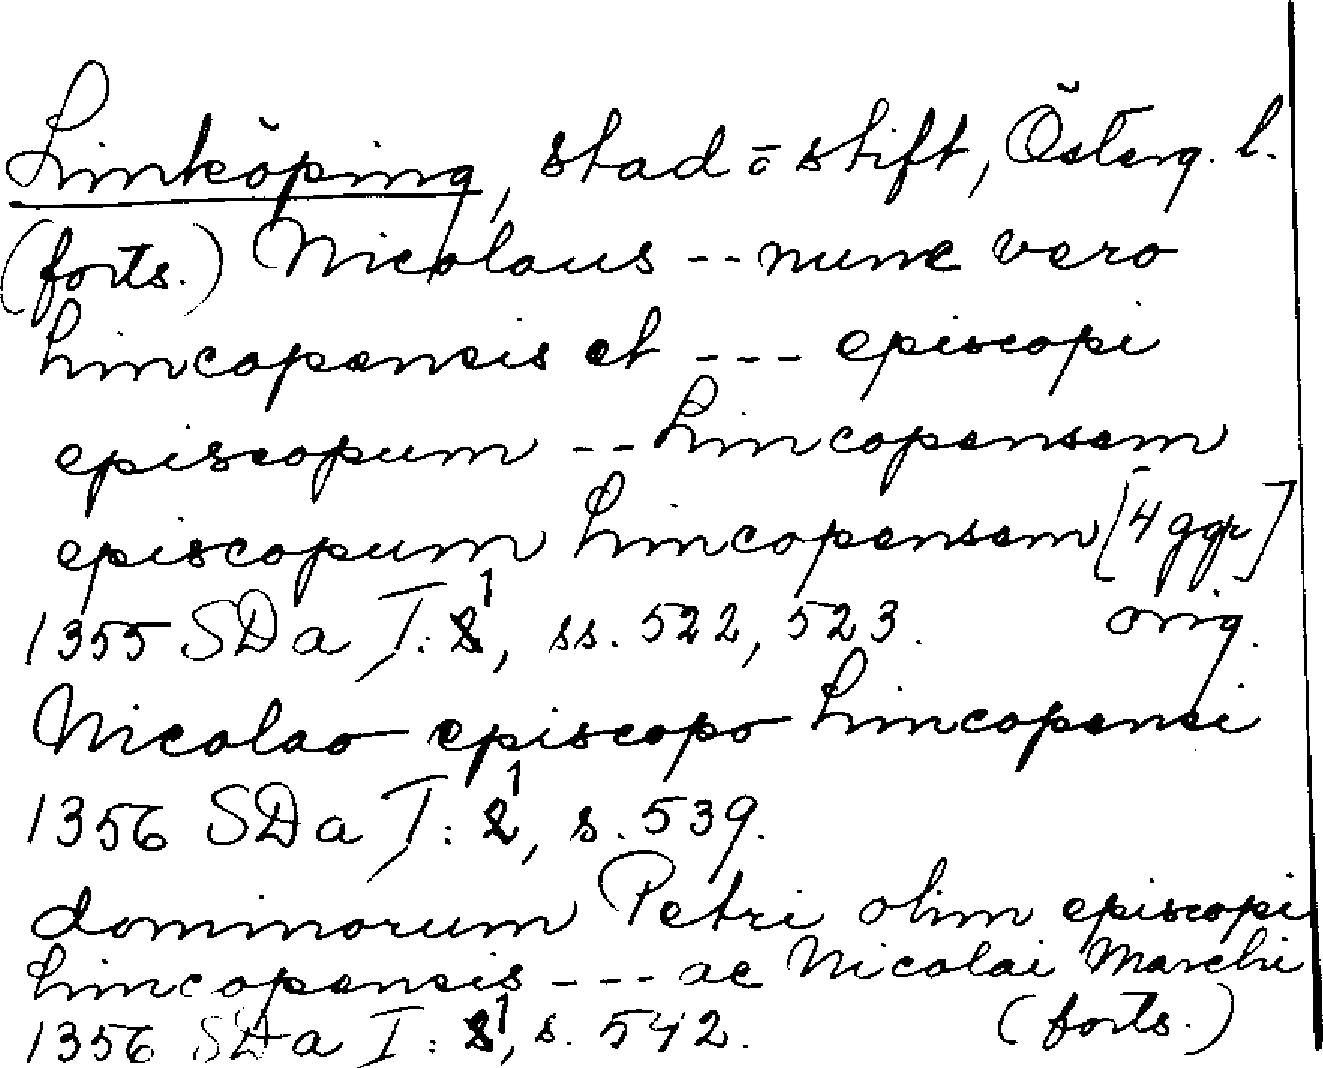 Linköping, stad o stift, Österg. l.
(forts.) Nicolaus -- nunc vero
Lincopensis et --- episcopi
episcopum -- Lincopensem
episcopum Lincopensem [4 ggr]
1355 SDa I: 1, ss. 522, 523. orig.
Nicolao episcopo Lincopensi
1356 SDa I: 1, s. 539.
dominorum Petri olim episcopi
Lincopensis --- ac Nicolai Marchi
1356 SDa I: 1, s. 542. (forts.)